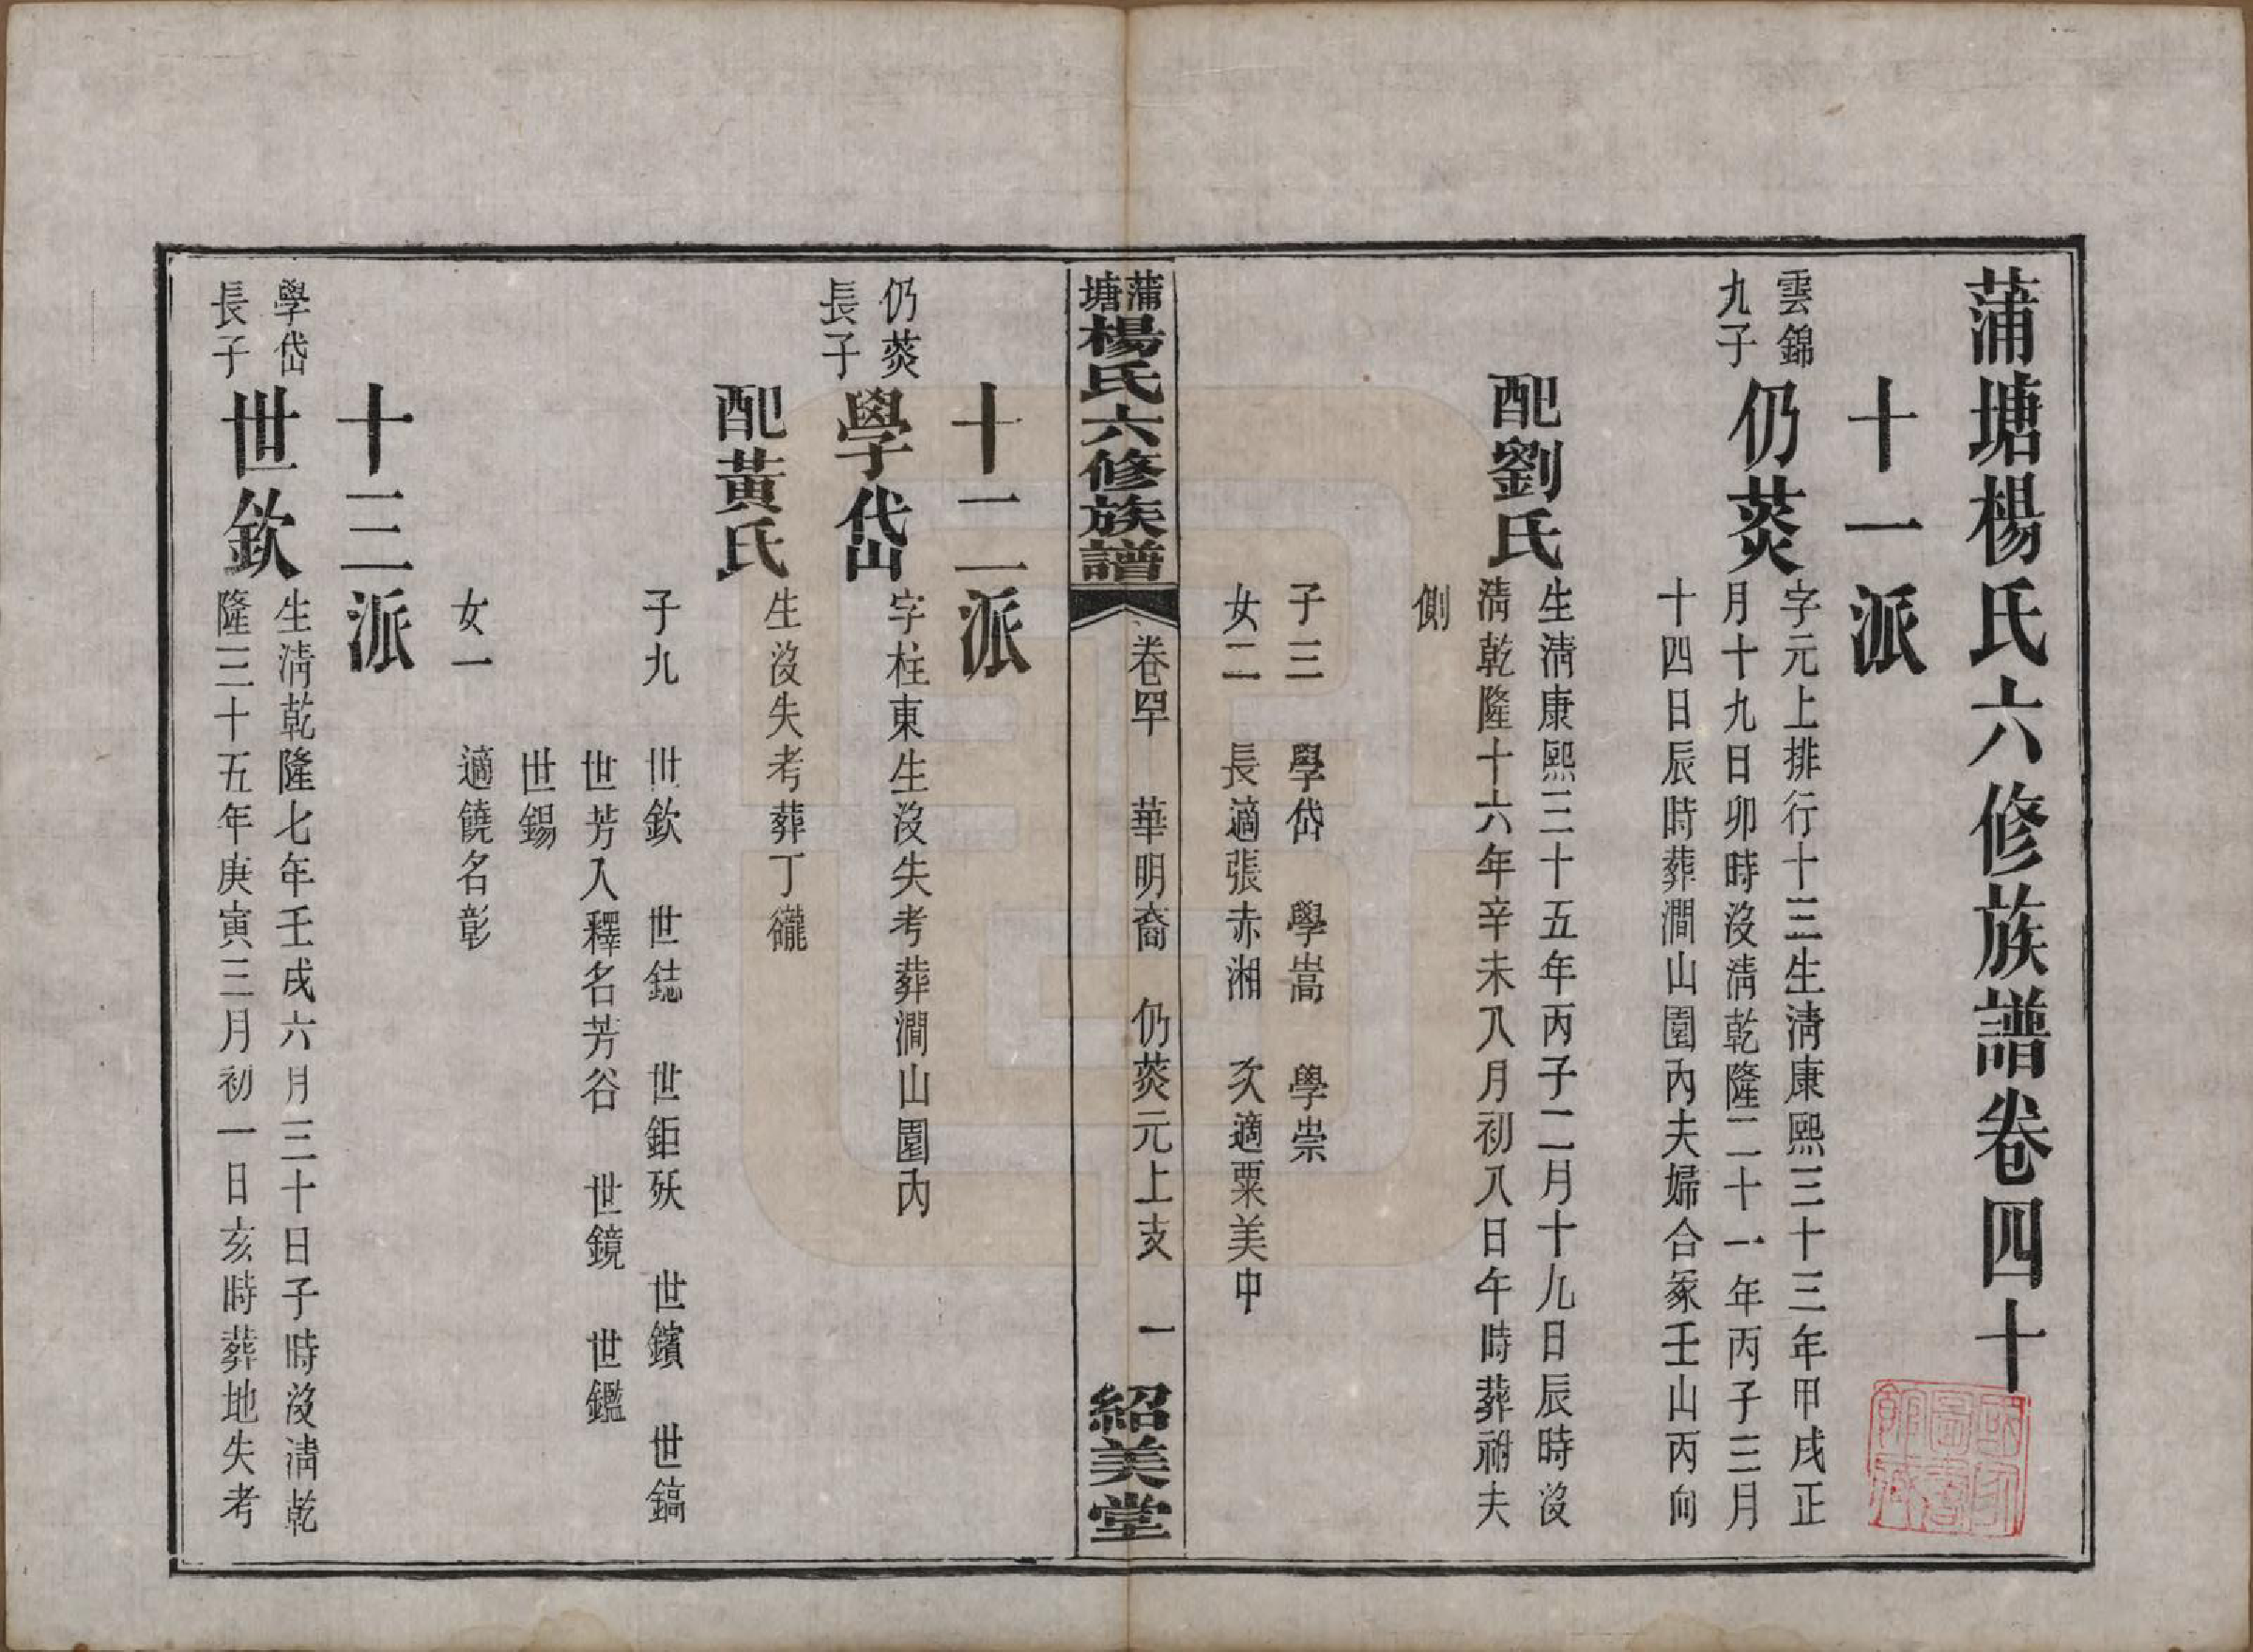 蒲塘楊氏六修族譜卷四十
十一派
雲錦
九子
仍菼
字元上排行十三生清康熙三十三年甲戌正
月十九日卯時沒清乾隆二十一年丙子三月
十四日辰時葬澗山園內夫婦合冢壬山丙向
配劉氏
生清康熙三十五年丙子二月十九日辰時沒
清乾隆十六年辛未八月初八日午時葬祔夫
側
子三 學岱 學嵩 學崇
女二 長適張赤湘 次適粟美中
蒲塘楊氏六修族譜 卷四十 華明裔 仍菼元上支 一 紹美堂
十二派
仍菼
長子
學岱
字柱東生沒失考葬澗山園內
配黃氏
生沒失考葬丁礲
子九 世欽 世鋕 世鉅殀 世鑌 世鎬
世芳入釋名芳谷 世鏡 世鑑
世錫
女一 適饒名彰
十三派
學岱
長子
世欽
生清乾隆七年壬戌六月三十日子時沒清乾
隆三十五年庚寅三月初一日亥時葬地失考